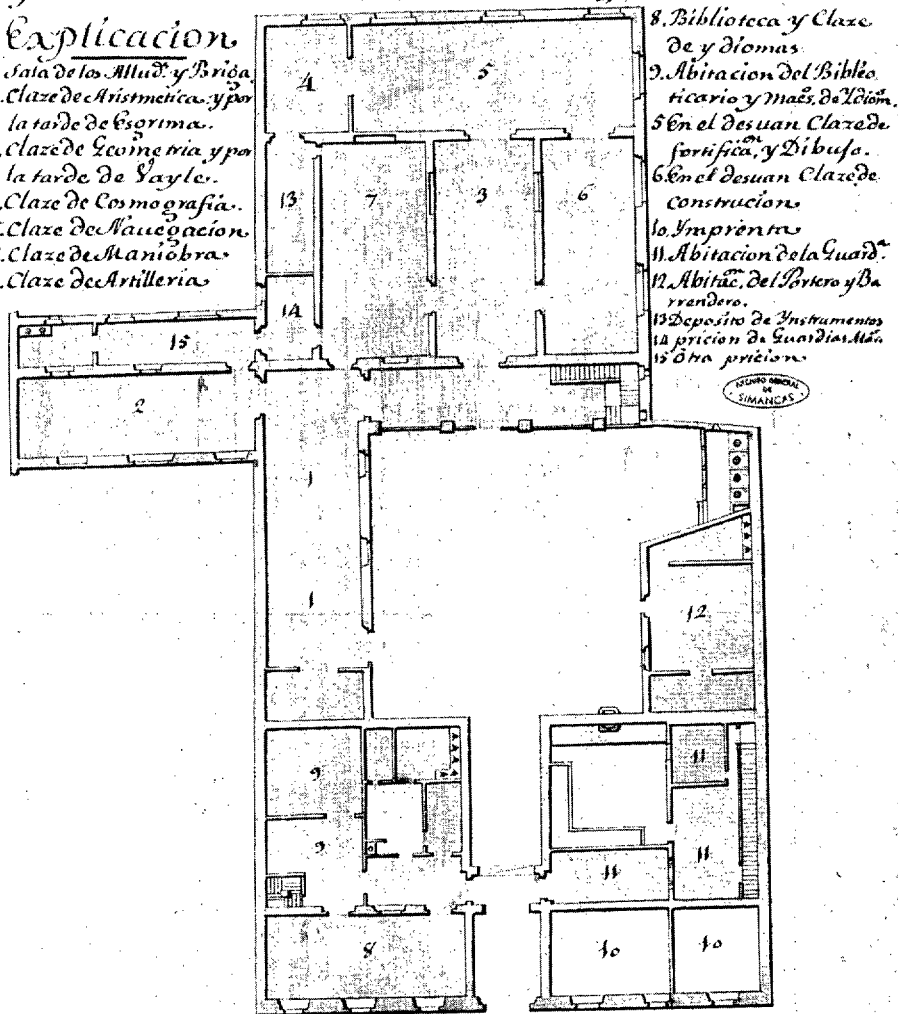 Explicacion
Sala de los Allud.ˢ y Briga
Claze de Arismetica y por
la tarde de Esgrima.
Claze de Geometria y por
la tarde de Vayle.
Claze de Cosmografia.
Claze de Nauegacion
Claze de Maniobra
Claze de Artilleria
8. Biblioteca y Claze
de ydiomas
9. Abitacion del Biblio
ticario y Maes. de Ydiom.
5 En el desuan Claze de
fortifica.ⁿ y Dibujo.
6. En el desuan Claze de
construcion
10. Ymprenta
11. Abitacion dela Guard.ª
12. Abitac. del Portero y Ba
rrendero.
13 Deposito de Ynstrumentos
14 pricion de Guardias Ma.
15 otra pricion
ARCHIVO GENERAL
DE
SIMANCAS
4
5
13
7
3
6
14
15
2
1
1
12
9
11
9
11
11
8
10
10